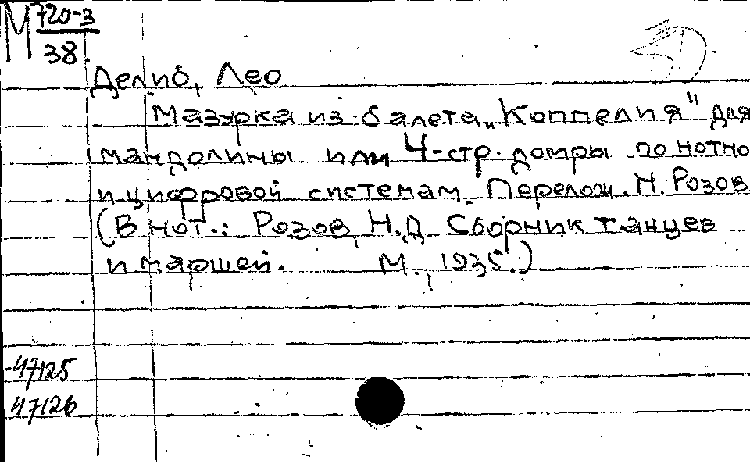 М 720-3
38
Делиб, Лео
Мазурка из балета „Коппелия" для
мандолины или 4-стр. домры по нотно
и цифровой системам. Перелож. Н. Розов
(В нот.: Розов, Н.Д. Сборник танцев
и маршей. М., 1935.)
47125
47126